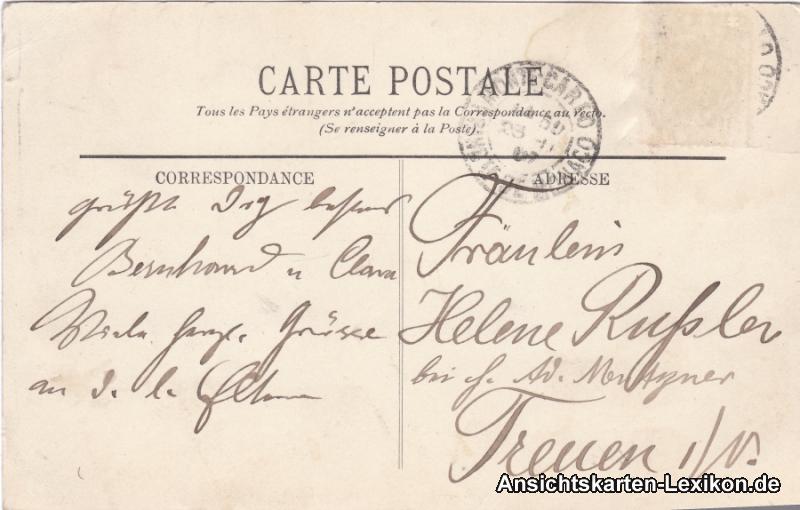 CARTE POSTALE
Tous les Pays étrangers n'acceptent pas la Correspondance au recto.
(Se renseigner à la Poste).
MONTE-CARLO
CORRESPONDANCE
grüßt Dich bestens
Bernhard u Clara
Viele herzl. Grüsse
an d. l. Eltern
ADRESSE
Fräulein
Helene Rußler
bei H. Ad.
Treuen i/V.
Ansichtskarten-Lexikon.de